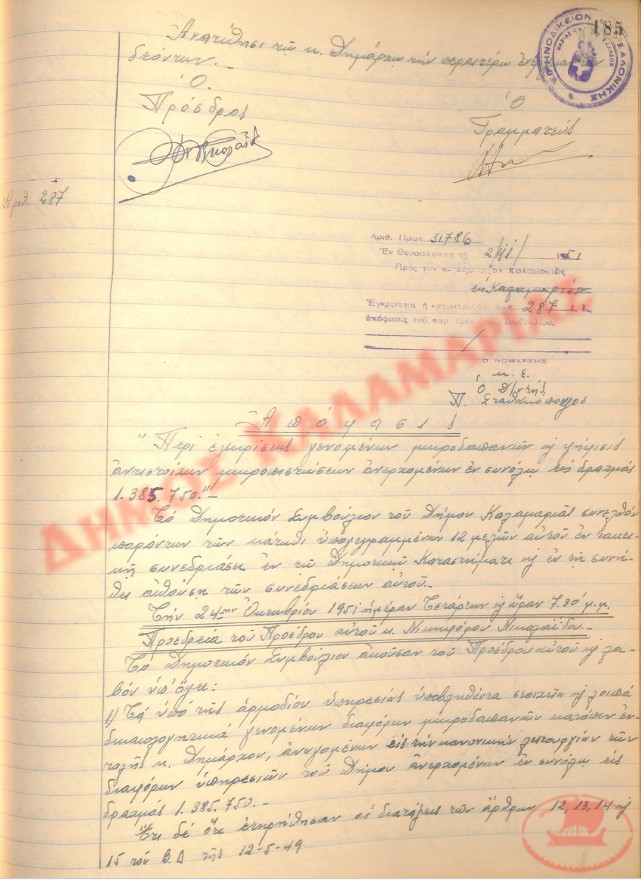 185
ΕΙΡΗΝΟΔΙΚΕΙΟΝ ΘΕΣΣΑΛΟΝΙΚΗΣ
Ἀνατίθησι τῷ κ. Δημάρχῳ τὴν περαιτέρω
δεόντων.—
Ὁ
Πρόεδρος
Ὁ
Γραμματεύς
Ἀριθ. 287
Ἀριθ. Πρωτ. 31786
Ἐν Θεσσαλονίκῃ τῇ 2/11/1951
Πρὸς τὸν κ. Δήμαρχον Καλαμαριᾶς
εἰς Καλαμαριὰν
Ἐγκρίνεται ἡ ὑπ' ἀριθ. 287
ἀπόφασις τοῦ παρ' ὑμῖν Συμβουλίου.
Ὁ ΝΟΜΑΡΧΗΣ
κ. ἐ.
Ὁ Δ/ντὴς
Π.
ΔΗΜΟΣ ΚΑΛΑΜΑΡΙΑΣ
Ἀπόφασις
"Περὶ ἐγκρίσεως γενομένων μικροδαπανῶν κ ψήφισις
ἀντιστοίχων μικροπιστώσεων ἀνερχομένων ἐν συνόλῳ εἰς δραχμάς
1.385.750.—"
Τὸ Δημοτικὸν Συμβούλιον τοῦ Δήμου Καλαμαριᾶς συνελθὸν
παρόντων τῶν κάτωθι ὑπογεγραμμένων 12 μελῶν αὐτοῦ ἐν τακτι-
κῇ συνεδριάσει ἐν τῷ Δημοτικῷ Καταστήματι κ ἐν τῇ συνή-
θει αἰθούσῃ τῶν συνεδριάσεων αὐτοῦ.
Τὴν 24ην Ὀκτωβρίου 1951 ἡμέραν Τετάρτην κ ὥραν 7.30' μ.μ.
Προεδρείᾳ τοῦ Προέδρου αὐτοῦ κ. Νικηφόρου Νικολαΐδου.—
Τὸ Δημοτικὸν Συμβούλιον ἀκοῦσαν τοῦ Προέδρου αὐτοῦ κ λα-
βὸν ὑπ' ὄψει:
1) Τὰ ὑπὸ τῆς ἁρμοδίου ὑπηρεσίας ὑποβληθέντα στοιχεῖα κ λοιπὰ
δικαιολογητικὰ γενομένων διαφόρων μικροδαπανῶν κατόπιν ἐν-
τολῆς κ. Δημάρχου, ἀναγομένων εἰς τὴν κανονικὴν λειτουργίαν τῶν
διαφόρων ὑπηρεσιῶν τοῦ Δήμου ἀνερχομένων ἐν συνόλῳ εἰς
δραχμὰς 1.385.750.—
Ἔτι δὲ ὅτι ἐτηρήθησαν αἱ διατάξεις τῶν ἄρθρων 12, 13, 14 κ
15 τοῦ Β.Δ τῆς 12-5-49